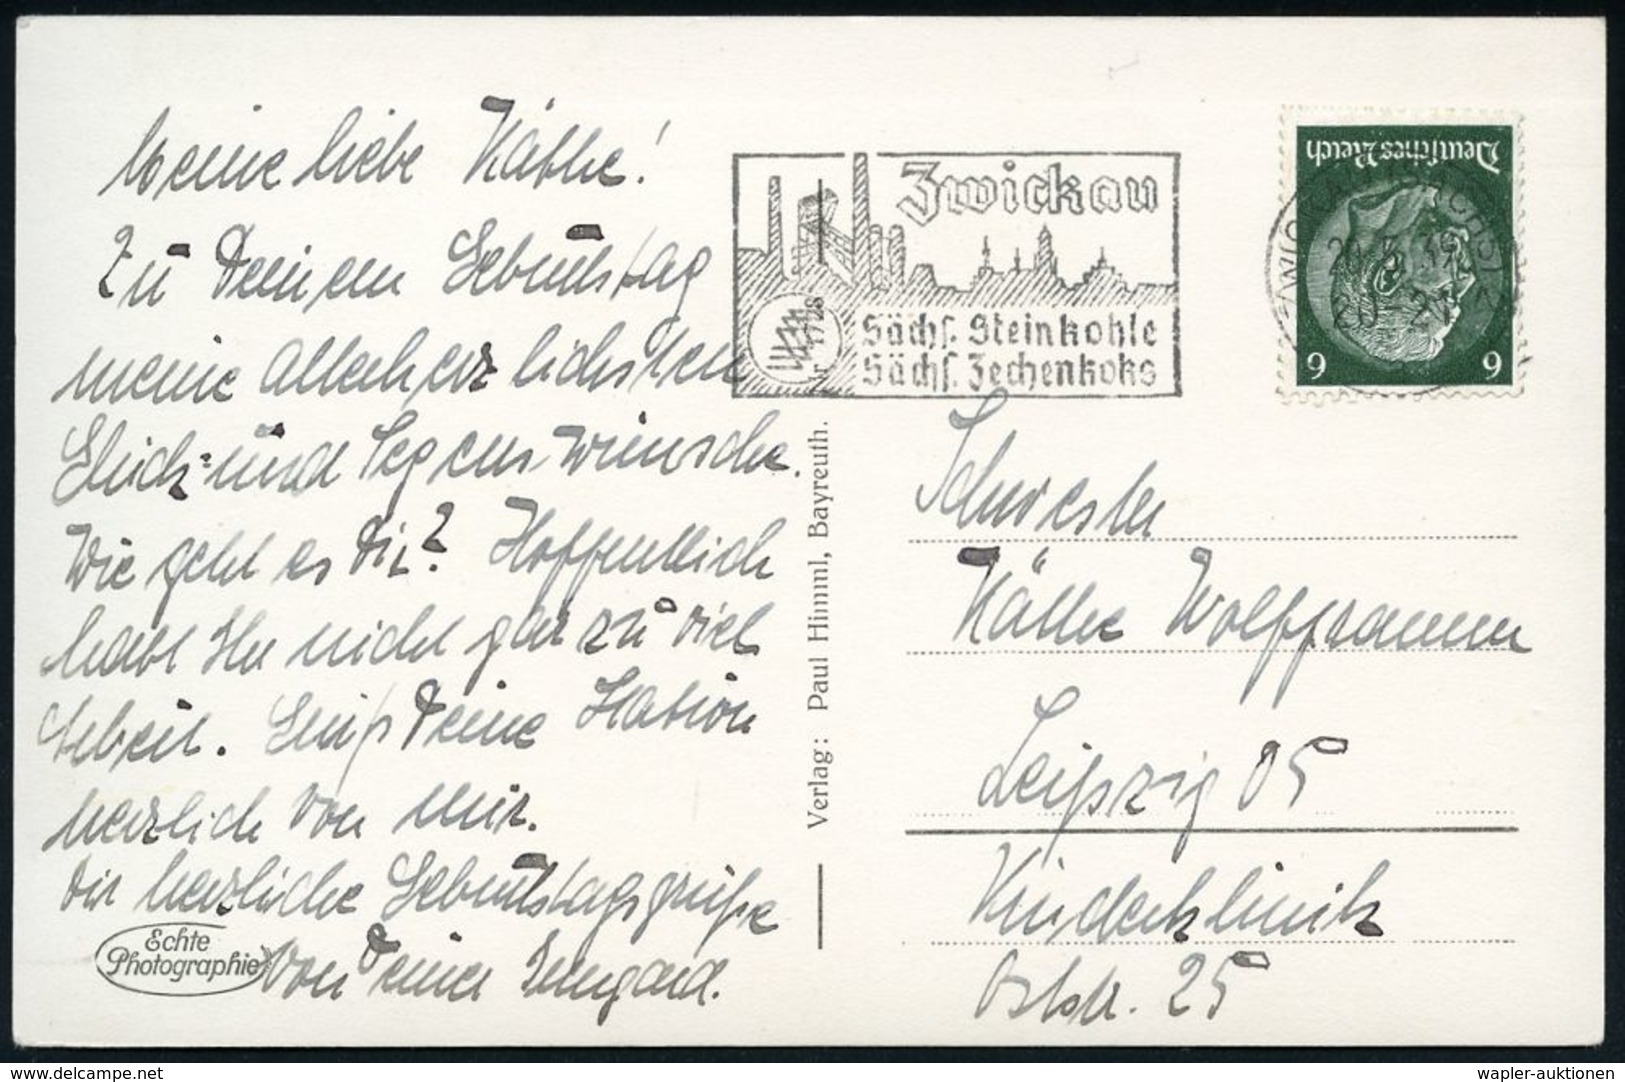 Meine liebe Käthe!
Zu Deinem Geburtstag
meine allerherzlichsten
Glück- und Segenswünsche.
Wie geht es Dir? Hoffentlich
habt Ihr nicht gar zu viel
Arbeit. Grüß Deine Station
herzlich von mir.
Dir herzliche Geburtstagsgrüße
von Deiner Irmgard.
Echte
Photographie
Zwickau
Sächs. Steinkohle
Sächs. Zechenkoks
Verlag: Paul Himml, Bayreuth.
Deutsches Reich
6 6
20-21
Schwester
Käthe Wolfframm
Leipzig O5
Kinderklinik
Oststr. 25
delcampe.net
wapler-auktionen